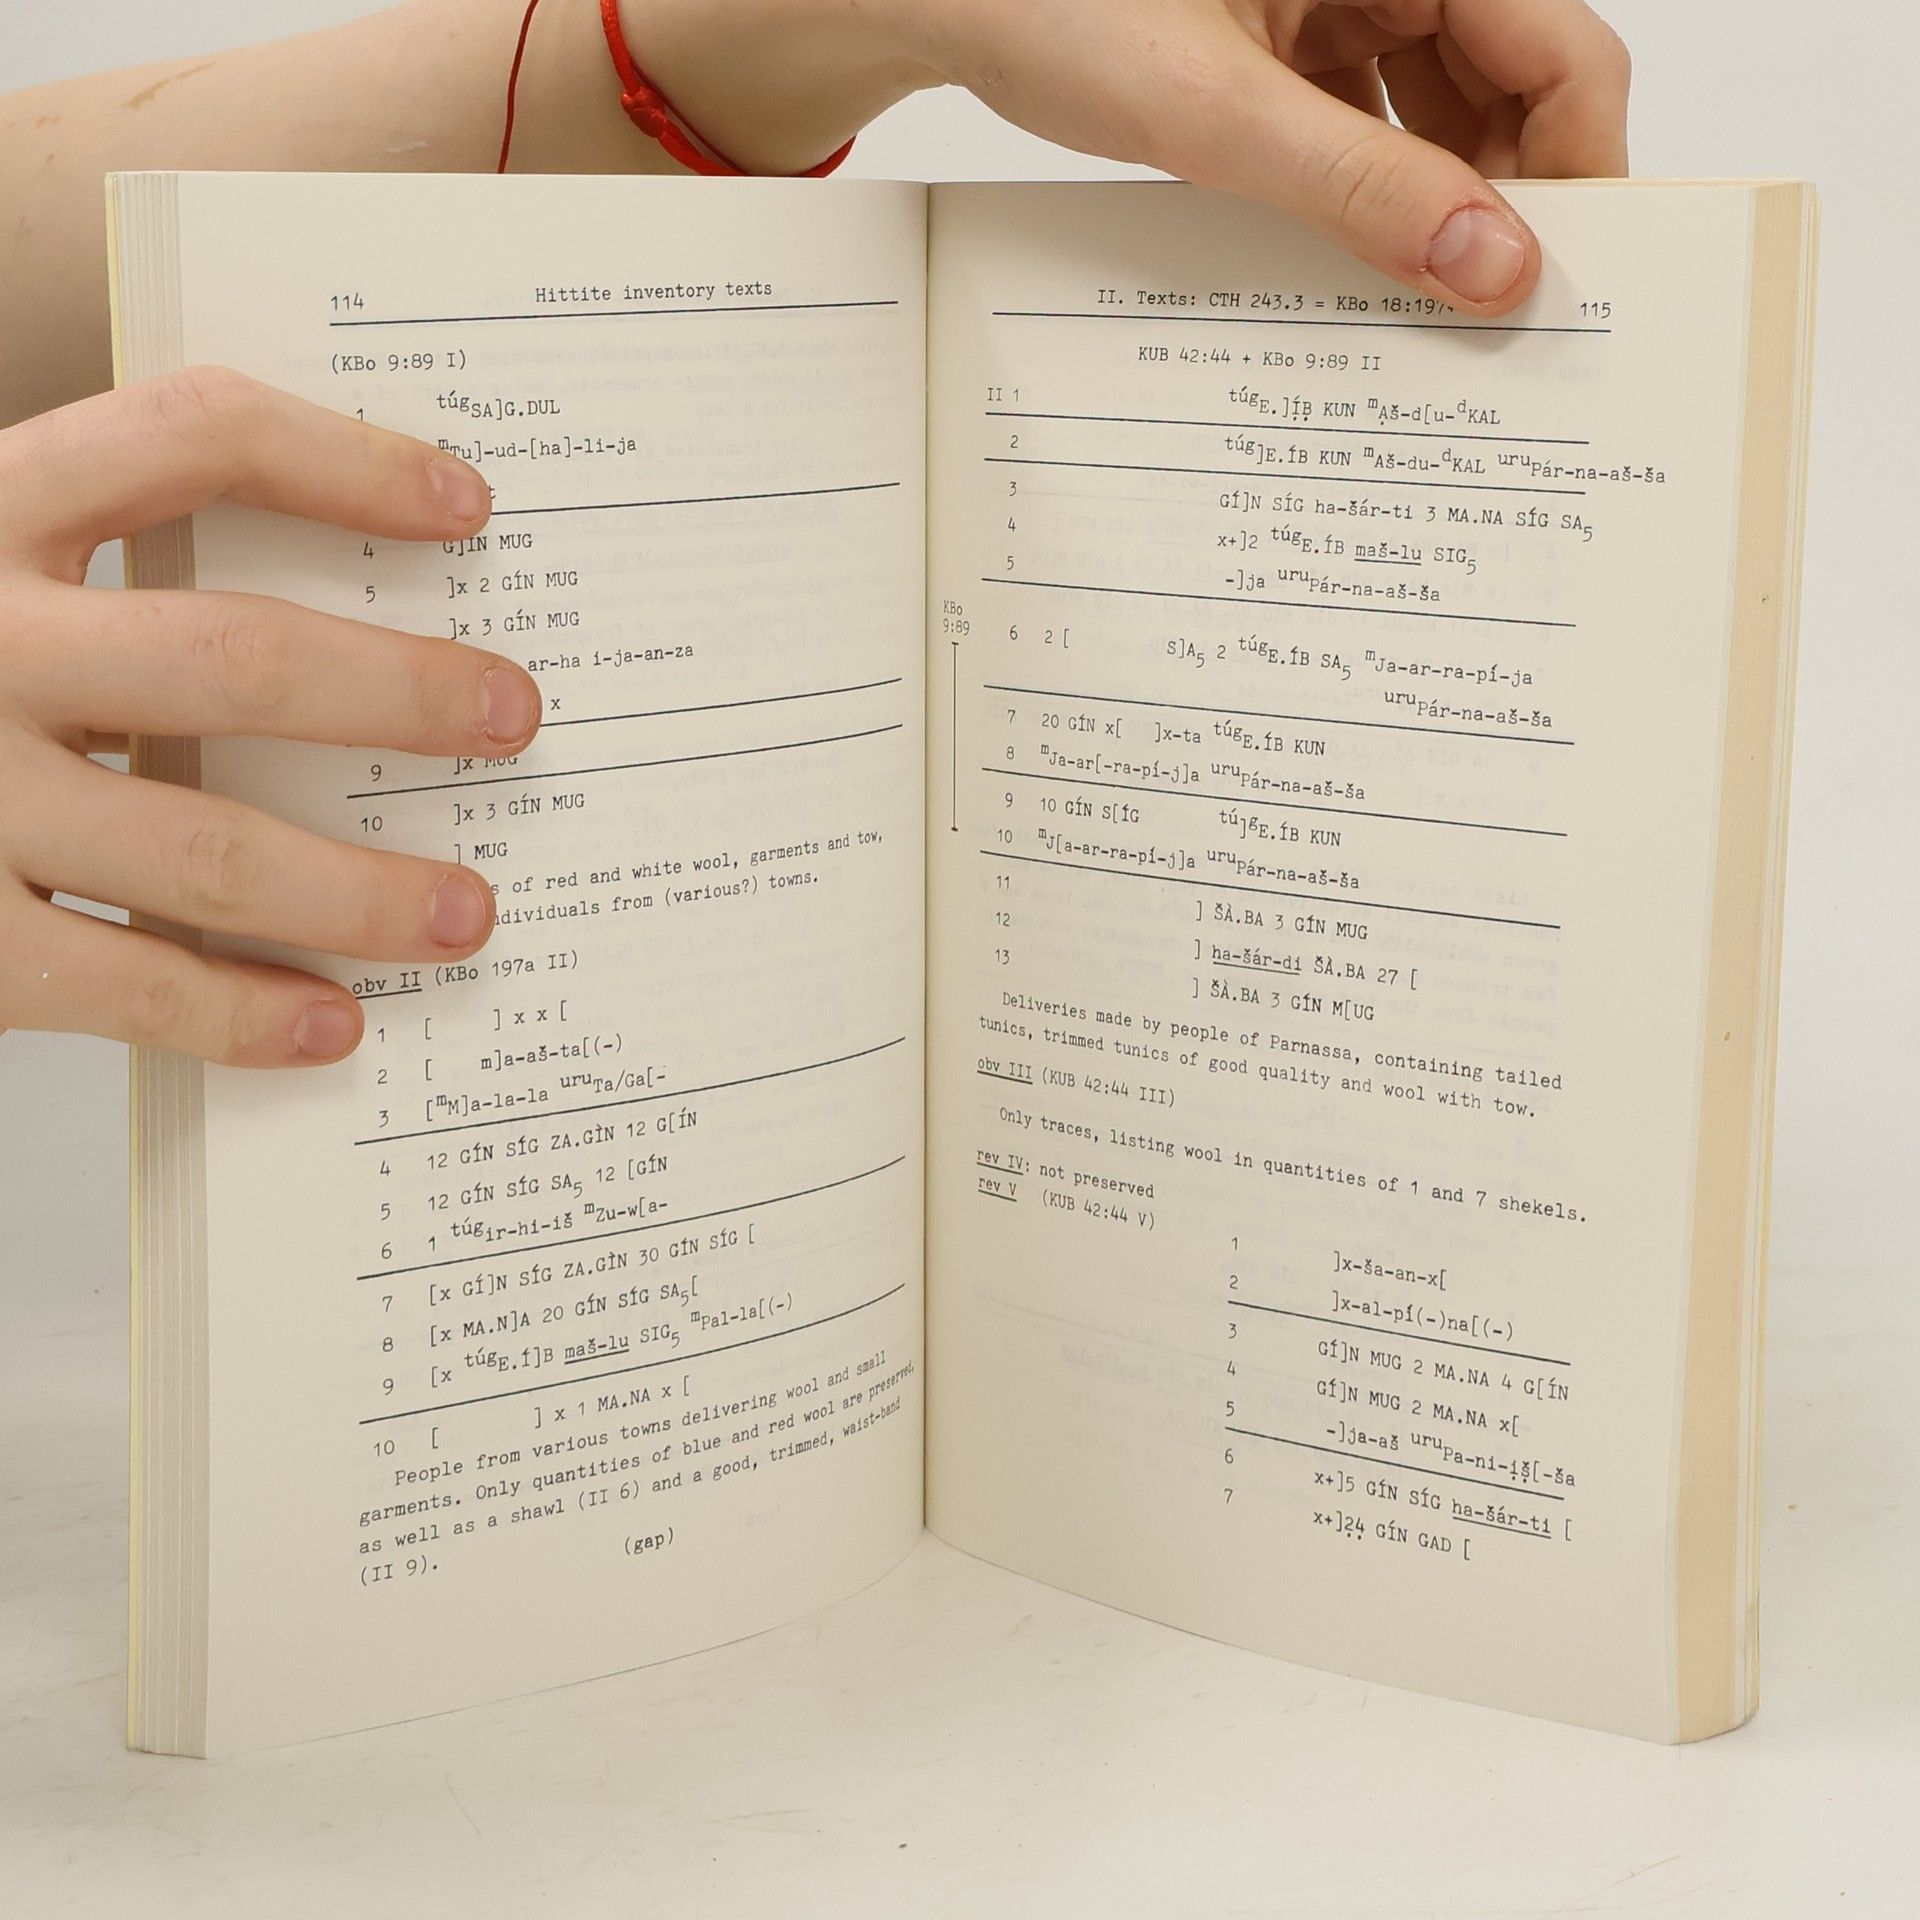 114 Hittite inventory texts
(KBo 9:89 I)
túgSA]G.DUL
mTu]-ud-[ha]-li-ja
4 G]ÍN MUG
5 ]x 2 GÍN MUG
]x 3 GÍN MUG
ar-ha i-ja-an-za
x
9 ]x MUG
10 ]x 3 GÍN MUG
] MUG
of red and white wool, garments and tow,
from (various?) towns.
obv II (KBo 197a II)
1 [ ] x x [
2 [ m]a-aš-ta[(-)
3 [mM]a-la-la uruTa/Ga[-
4 12 GÍN SÍG ZA.GÌN 12 G[ÍN
5 12 GÍN SÍG SA5 12 [GÍN
6 1 túgir-hi-iš mZu-w[a-
7 [x GÍ]N SÍG ZA.GÌN 30 GÍN SÍG [
8 [x MA.N]A 20 GÍN SÍG SA5[
9 [x túgE.Í]B maš-lu SIG5 mPal-la[(-)
10 [ ] x 1 MA.NA x [
People from various towns delivering wool and small
garments. Only quantities of blue and red wool are preserved,
as well as a shawl (II 6) and a good, trimmed, waist-band
(II 9).
(gap)
II. Texts: CTH 243.3 = KBo 115
KUB 42:44 + KBo 9:89 II
II 1 túgE.]ÍB KUN mAš-d[u-dKAL
2 túg]E.ÍB KUN mAš-du-dKAL uruPár-na-aš-ša
3 GÍ]N SÍG ha-šár-ti 3 MA.NA SÍG SA5
4 x+]2 túgE.ÍB maš-lu SIG5
5 -]ja uruPár-na-aš-ša
KBo
9:89
6 2 [ S]A5 2 túgE.ÍB SA5 mJa-ar-ra-pí-ja
uruPár-na-aš-ša
7 20 GÍN x[ ]x-ta túgE.ÍB KUN
8 mJa-ar[-ra-pí-j]a uruPár-na-aš-ša
9 10 GÍN S[ÍG tú]gE.ÍB KUN
10 mJ[a-ar-ra-pí-j]a uruPár-na-aš-ša
11 ] ŠÀ.BA 3 GÍN MUG
12 ] ha-šár-di ŠÀ.BA 27 [
13 ] ŠÀ.BA 3 GÍN M[UG
Deliveries made by people of Parnassa, containing tailed
tunics, trimmed tunics of good quality and wool with tow.
obv III (KUB 42:44 III)
Only traces, listing wool in quantities of 1 and 7 shekels.
rev IV: not preserved
rev V (KUB 42:44 V)
1 ]x-ša-an-x[
2 ]x-al-pí(-)na[(-)
3 GÍ]N MUG 2 MA.NA 4 G[ÍN
4 GÍ]N MUG 2 MA.NA x[
5 -]ja-aš uruPa-ni-iš[-ša
6 x+]5 GÍN SÍG ha-šár-ti [
7 x+]24 GÍN GAD [